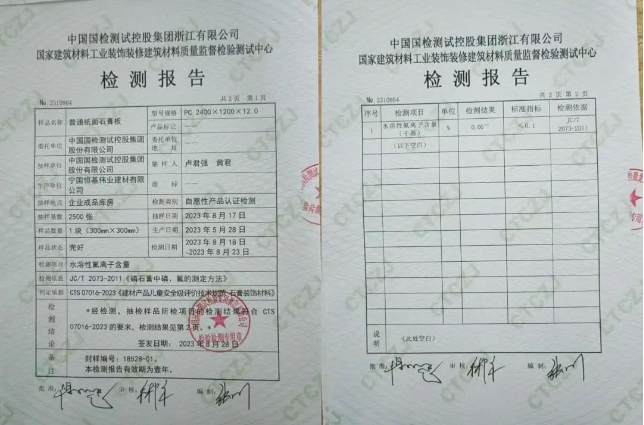 中国国检测试控股集团浙江有限公司
国家建筑材料工业装饰装修建筑材料质量监督检验测试中心
检测报告
共2页 第1页
No.2310964
样品名称 普通纸面石膏板 型号规格 PC 2400×1200×12.0
产品标记 —
委托单位 中国国检测试控股集团股份有限公司 委托单位地址 —
抽样单位 中国国检测试控股集团股份有限公司 抽样人 卢君强 黄君
生产单位 宁国恒基伟业建材有限公司 商标 —
抽样地点 企业成品库房 检测类别 自愿性产品认证检测
抽样基数 2500 张 抽样日期 2023 年 8 月 17 日
样品数量 1 块（300mm×300mm） 生产日期 2023 年 5 月 28 日
样品状态 完好 检测日期 2023 年 8 月 18 日
~2023 年 8 月 23 日
检测项目 水溶性氟离子含量
检测依据 JC/T 2073-2011《磷石膏中磷、氟的测定方法》
判定依据 CTS 07016-2023《建材产品儿童安全级评价技术规范 石膏装饰材料》
检测结论
*经检测，抽检样品所检项目的检测结果符合 CTS
07016-2023 的要求，检测结果见第 2 页。*
签发日期：2023 年 8 月 28 日
检验检测专用章
备注
封样编号：18528-01。
本检测报告有效期为壹年。
批准： 审核： 编制：
CTCZJ
中国国检测试控股集团浙江有限公司
国家建筑材料工业装饰装修建筑材料质量监督检验测试中心
检测报告
共 2 页 第 2 页
No.2310964
序号 检测项目 单位 检测结果 标准指标 检测依据
1 水溶性氟离子含量（干基） % 0.00 ≤0.1 JC/T 2073-2011
（以下空白）
说明 （此处空白）
批准： 审核： 编制：
CTCZJ